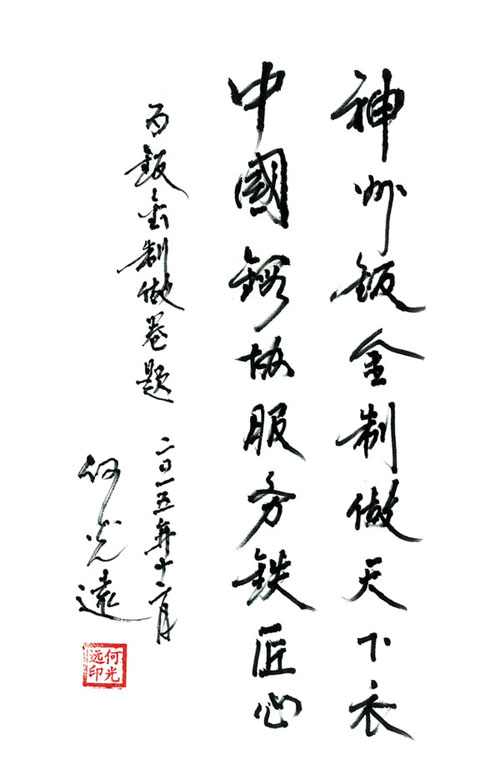 神州钣金制做天下衣
中國鍛协服务鉄匠心
为钣金制做卷题
二〇一五年十二月
何光遠
何光远印